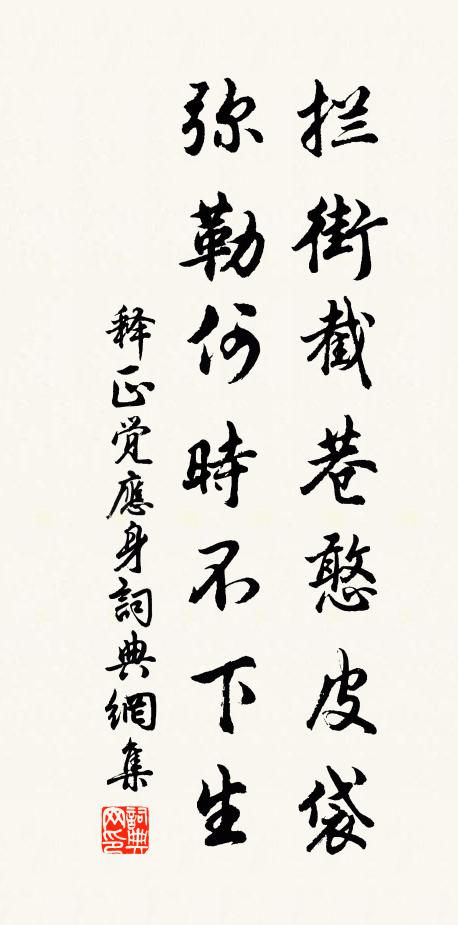 拦街截巷憨皮袋
弥勒何時不下生
释正覚應身詞典網集
詞典网印